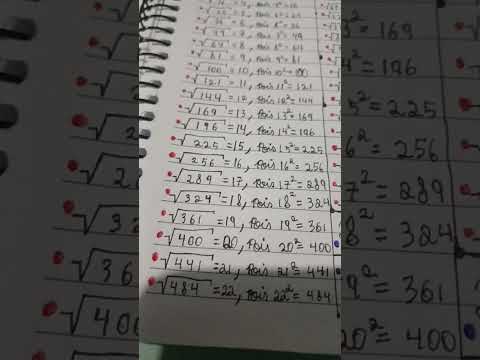 √36 = 6, Pois 6² = 36
√49 = 7, Pois 7² = 49
√64 = 8, Pois 8² = 64
√81 = 9, Pois 9² = 81
√100 = 10, Pois 10² = 100
√121 = 11, Pois 11² = 121
√144 = 12, Pois 12² = 144
√169 = 13, Pois 13² = 169
√196 = 14, Pois 14² = 196
√225 = 15, Pois 15² = 225
√256 = 16, Pois 16² = 256
√289 = 17, Pois 17² = 289
√324 = 18, Pois 18² = 324
√361 = 19, Pois 19² = 361
√400 = 20, Pois 20² = 400
√441 = 21, Pois 21² = 441
√484 = 22, Pois 22² = 484